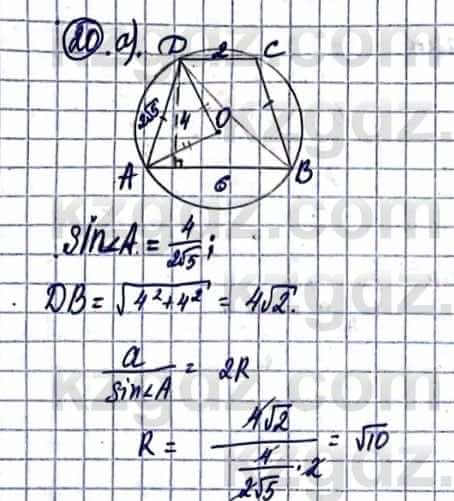 20. а).
D 2 C
2√5 4 O
4
A B
6
sin∠A = 4/(2√5);
DB = √(4²+4²) = 4√2.
a/(sin∠A) = 2R
R = (4√2)/((4/(2√5))·2) = √10
kzgdz.